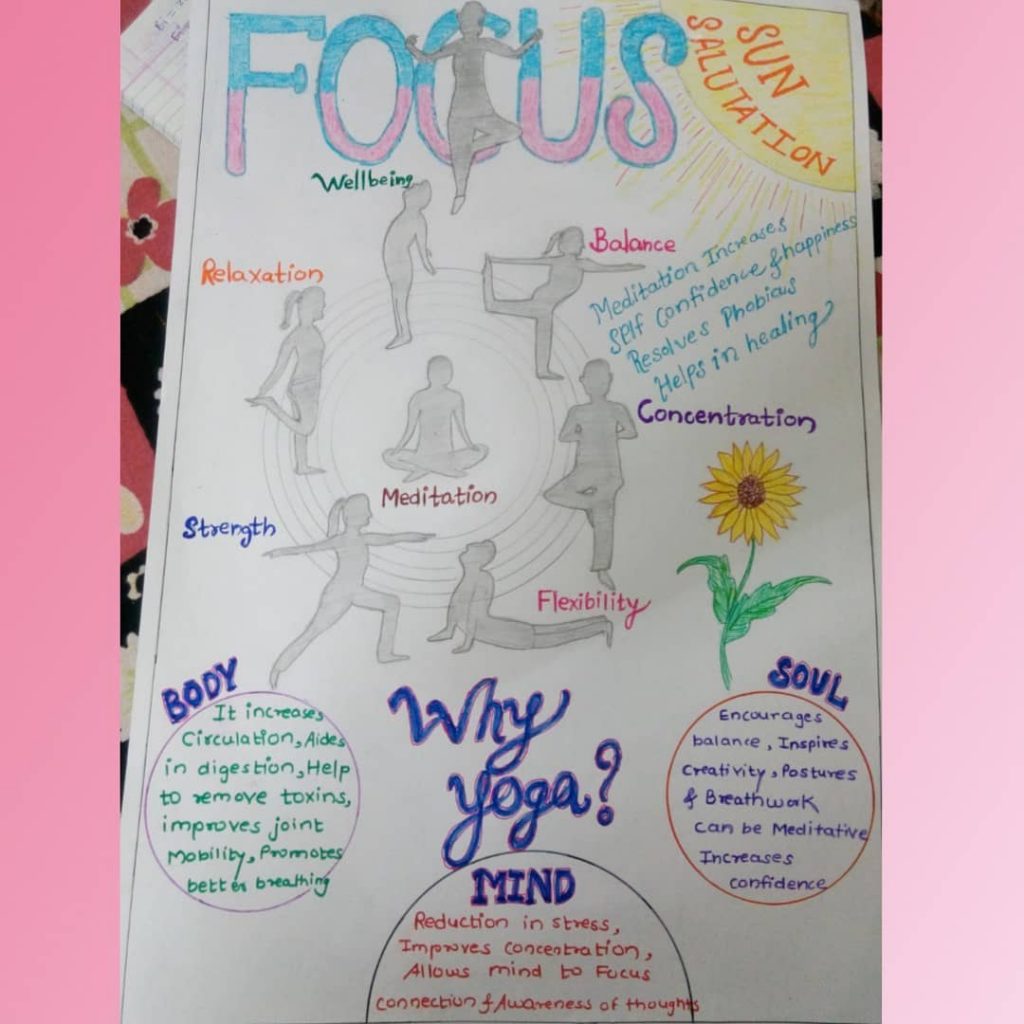 FOCUS
SUN
SALUTATION
Wellbeing
Balance
Relaxation
Meditation Increases
Self Confidence & happiness
Resolves Phobicus
Helps in healing
Concentration
Meditation
Strength
Flexibility
BODY
It increases
Circulation, Aides
in digestion, Help
to remove toxins,
improves joint
Mobility, Promotes
better breathing
Why
yoga?
SOUL
Encourages
balance, Inspires
Creativity, Postures
& Breathwork
Can be Meditative
Increases
confidence
MIND
Reduction in stress,
Improves concentration,
Allows mind to Focus
Connection & Awareness of thoughts